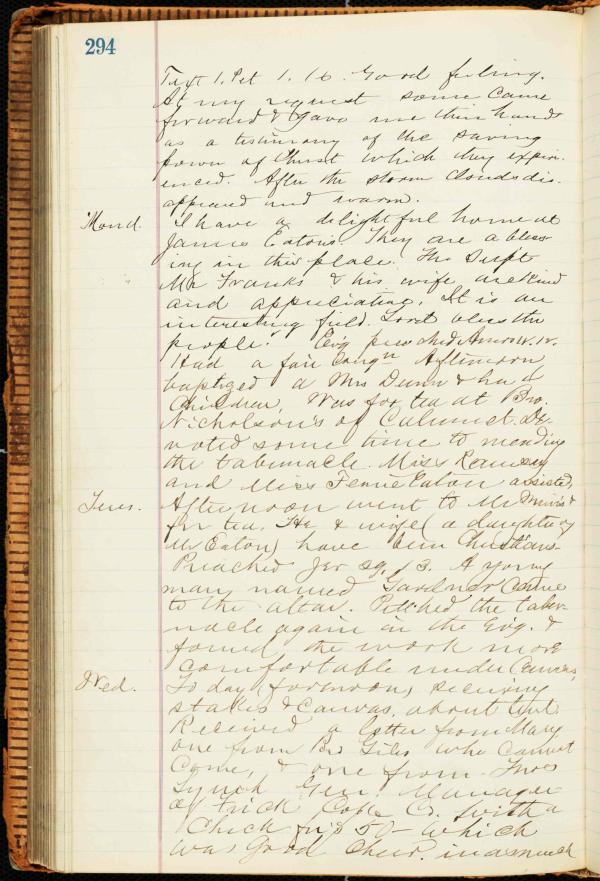 294
Text 1. Pet 1. 16. Good feeling.
At my request some came
forward & gave me their hands
as a testimony of the saving
power of Christ which they exper-
ienced. After the storm clouds dis-
appeared and warm.
Mond. I have a delightful home at
James Eaton's. They are a bless-
ing in this place. The Supt
Mr Franks & his wife are kind
and appreciative. It is an
interesting field. Lord bless the
people. Evg preached Amos IV. 12.
Had a fair Congn Afternoon
baptized a Mrs Dunn & her
Children, Was for tea at Bro.
Nicholson's of Calumet. De-
voted some time to mending
the tabernacle. Miss Ramsey
and Miss Fennie Eaton assisted,
Tues. Afternoon went to Mr
for tea. He & wife (a daughter of
Mr Eaton) have been Christians
Preached Jer 29. 13. A young
man named Gardner came
to the altar. Pitched the taber-
nacle again in the Evg. &
found the work more
comfortable under Canvas,
Wed. To day (forenoon) securing
stakes & Canvas, about tent.
Received a letter from Mary
one from Bro Giles who cannot
Come, & one from Thos
Lynch Gen. Manager
of Frick Coke Co. with a
Check for $50- which
was Good Cheer. inasmuch